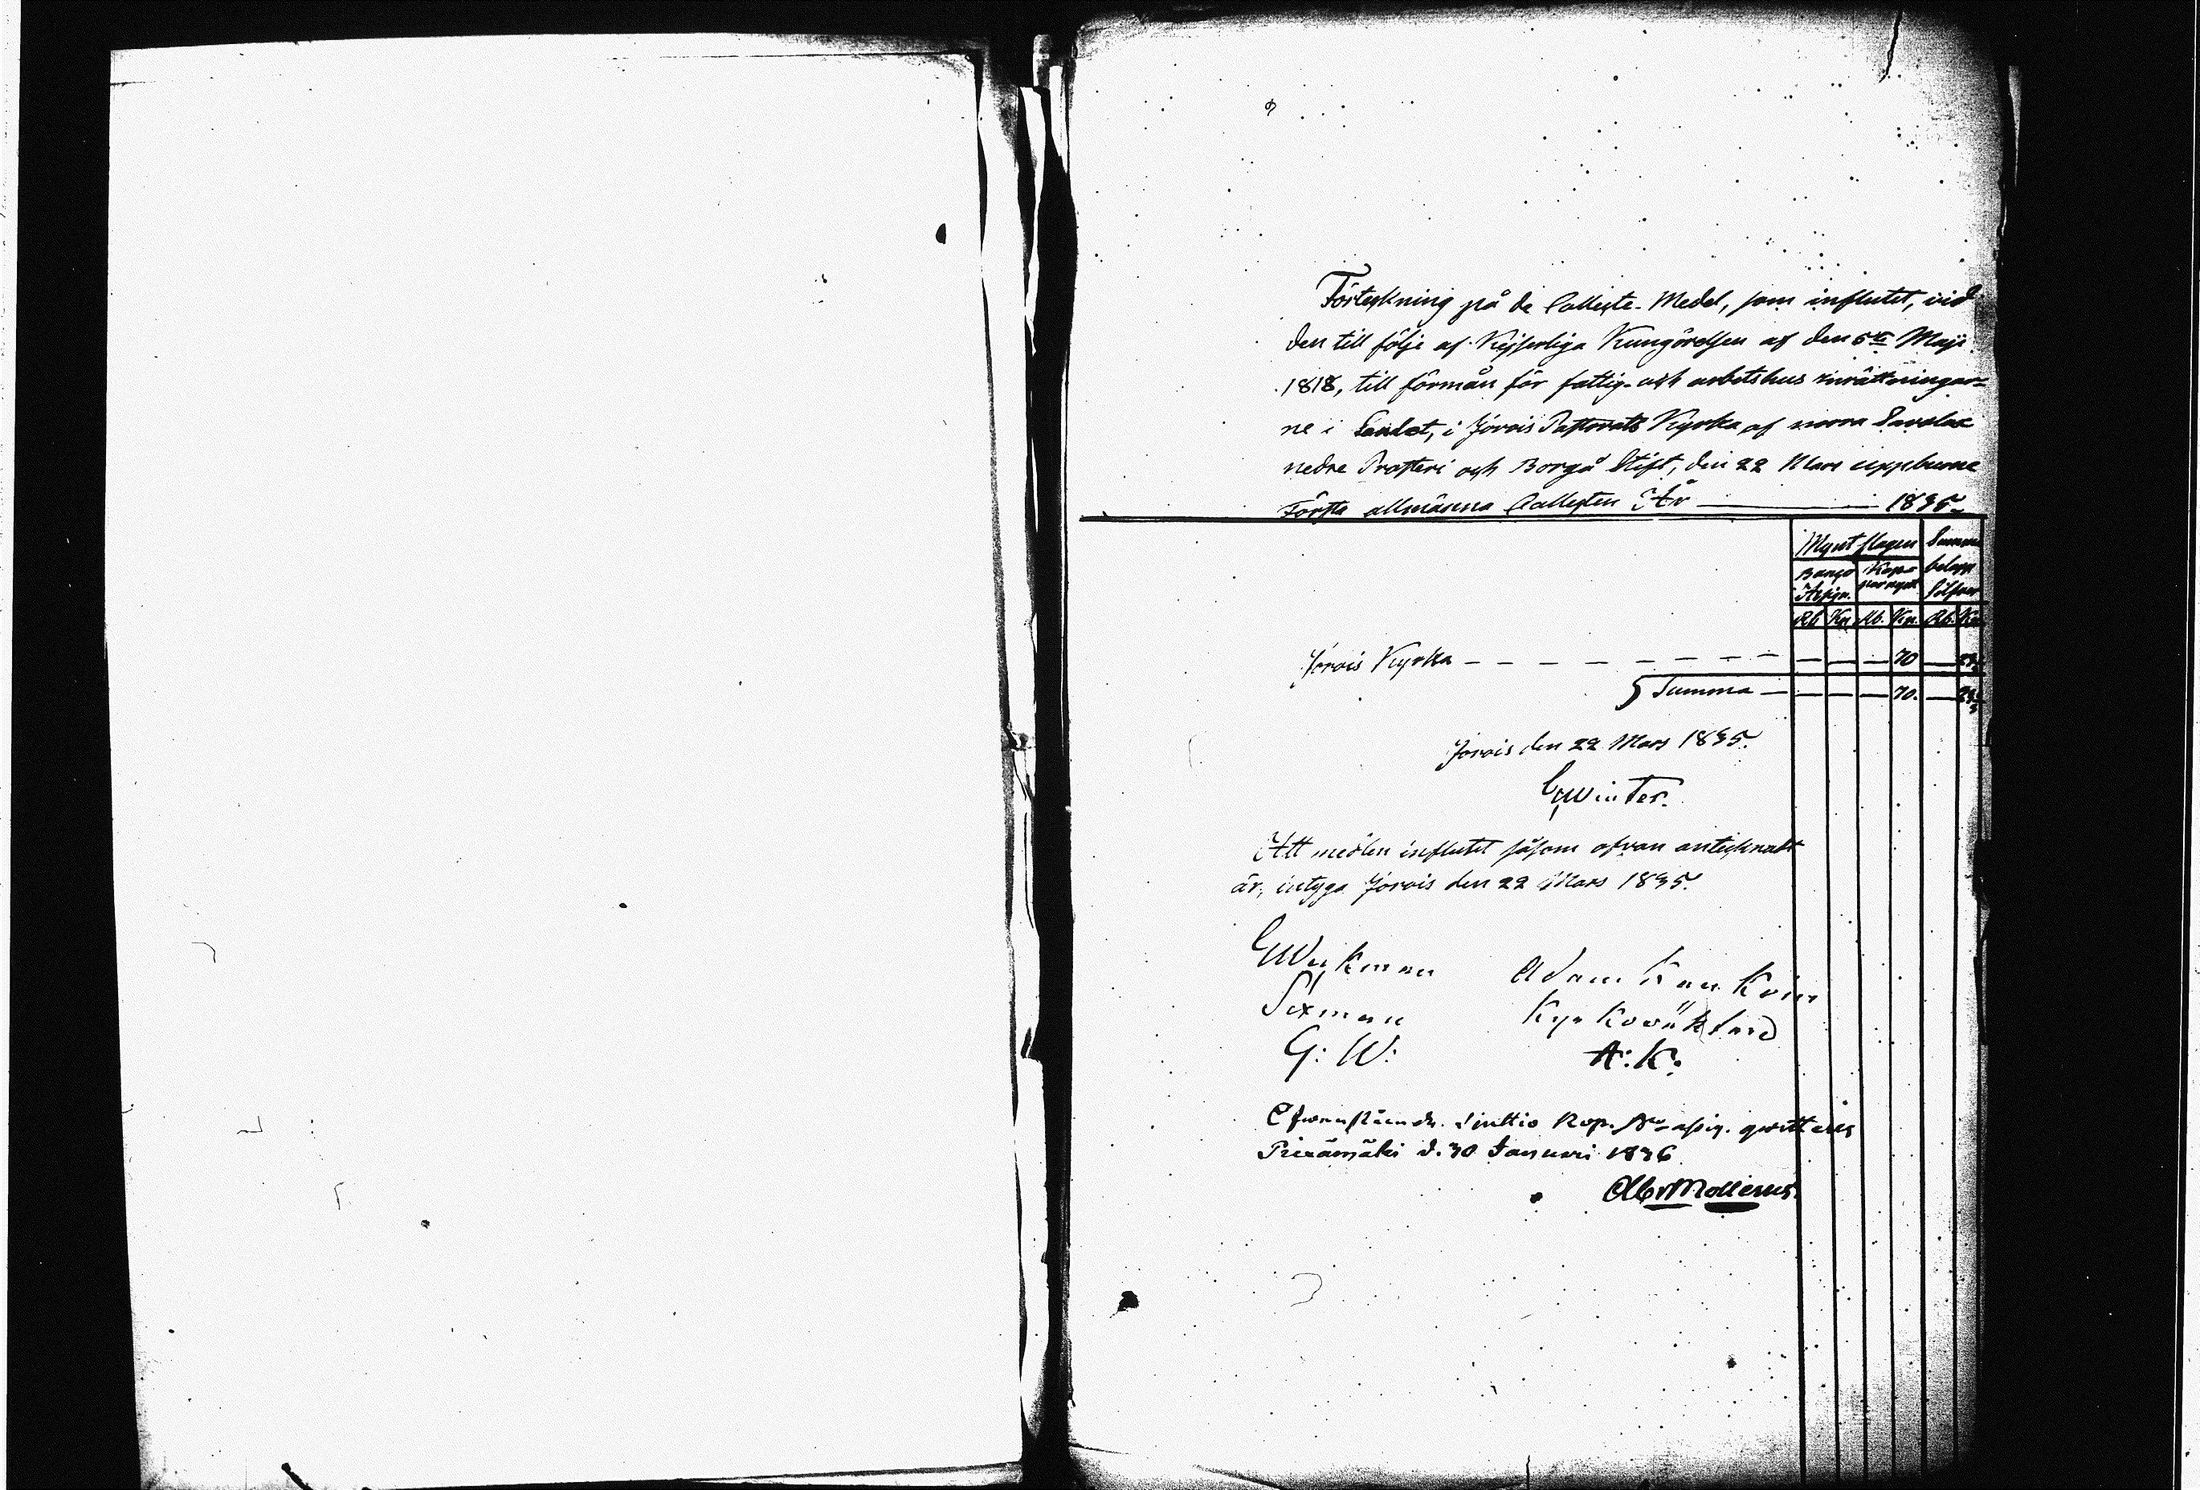 Förteckning på de Collecte-Medel, som influtit, vid
den till följe af Kejserliga Kungörelsen af den 5te Maji
1818, till förmån för fattig- och arbetshus inrättningar=
ne i Landet, i Jorois Pastorats Kyrka af norra Savolax
nedre Prosteri och Borgå Stift, den 22 Mars uppburne
Första allmänna Collecten År — 1835.
Mynt slagen Summa
Banco Kopo belopp
Assign. parmynt Silfver
Rb Kn Rb. Kn. Rb. Kn
Jorois Kyrka — — — — — — — — — — — 70 —
Summa — — — — 70. —
Jorois den 22 Mars 1835.
Winter.
Att medlen influtit såsom ofvan antecknadt
är, intyga Jorois den 22 Mars 1835.
Adam
Sexman Kyrkoväktard
G: W: A: K:
Ofwanstående Siuttio Kop. assig. qvitteras
d. 30 Januari 1836
Mollerus.